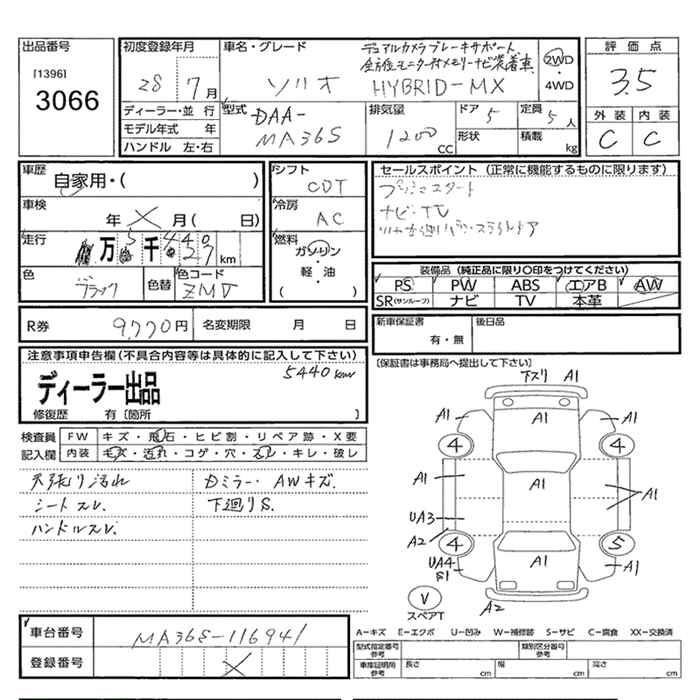 出品番号
[1396]
3066
初度登録年月
28 7月
ディーラー・並 行
モデル年式 年
ハンドル 左・右
車名・グレード
デュアルカメラブレーキサポート
全方位モニター付メモリーナビ装着車
ソリオ HYBRID-MX
2WD
・
4WD
型式 DAA-
MA36S
排気量
1200
CC
ドア 5
形状
定員 5人
積載 kg
評価点
3.5
外装 内装
C C
車歴
自家用・( )
車検
年 X 月( 日)
走行
万 千
km
色
ブラック
色替
色コード
ZMV
シフト
CDT
冷房
AC
燃料
ガソリン
・
軽・油
( )
セールスポイント (正常に機能するものに限ります)
プッシュスタート
ナビ・TV
装備品 (純正品に限り○印をつけてください)
PS PW ABS エアB AW
SR(サンルーフ) ナビ TV 本革
R券 9,770円
名変期限 月 日
新車保証書
有・無
後日品
[保証書は事務局へ提出して下さい]
注意事項申告欄(不具合内容等は具体的に記入して下さい)
5440km
ディーラー出品
修復歴 有 [箇所 ]
検査員 FW キズ・飛石・ヒビ割・リペア跡・X要
記入欄 内装 キズ・汚れ・コゲ・穴・スレ・キレ・破レ
天張り汚れ
シートスレ
ハンドルスレ
Dミラー・AWキズ.
下廻りS.
下スリ A1
A1 A1 A1
4 4
A1 A1 A1
UA3
A2 4 5
UA4 A1 A1
S1
V
スペアT
A2
車台番号 MA36S-116941
登録番号 X
A-キズ E-エクボ U-凹み W-補修跡 S-サビ C-腐食 XX-交換済
型式指定番号
参考
類別区分番号
参考
車庫証明用
参考
長さ cm 幅 cm 高さ cm